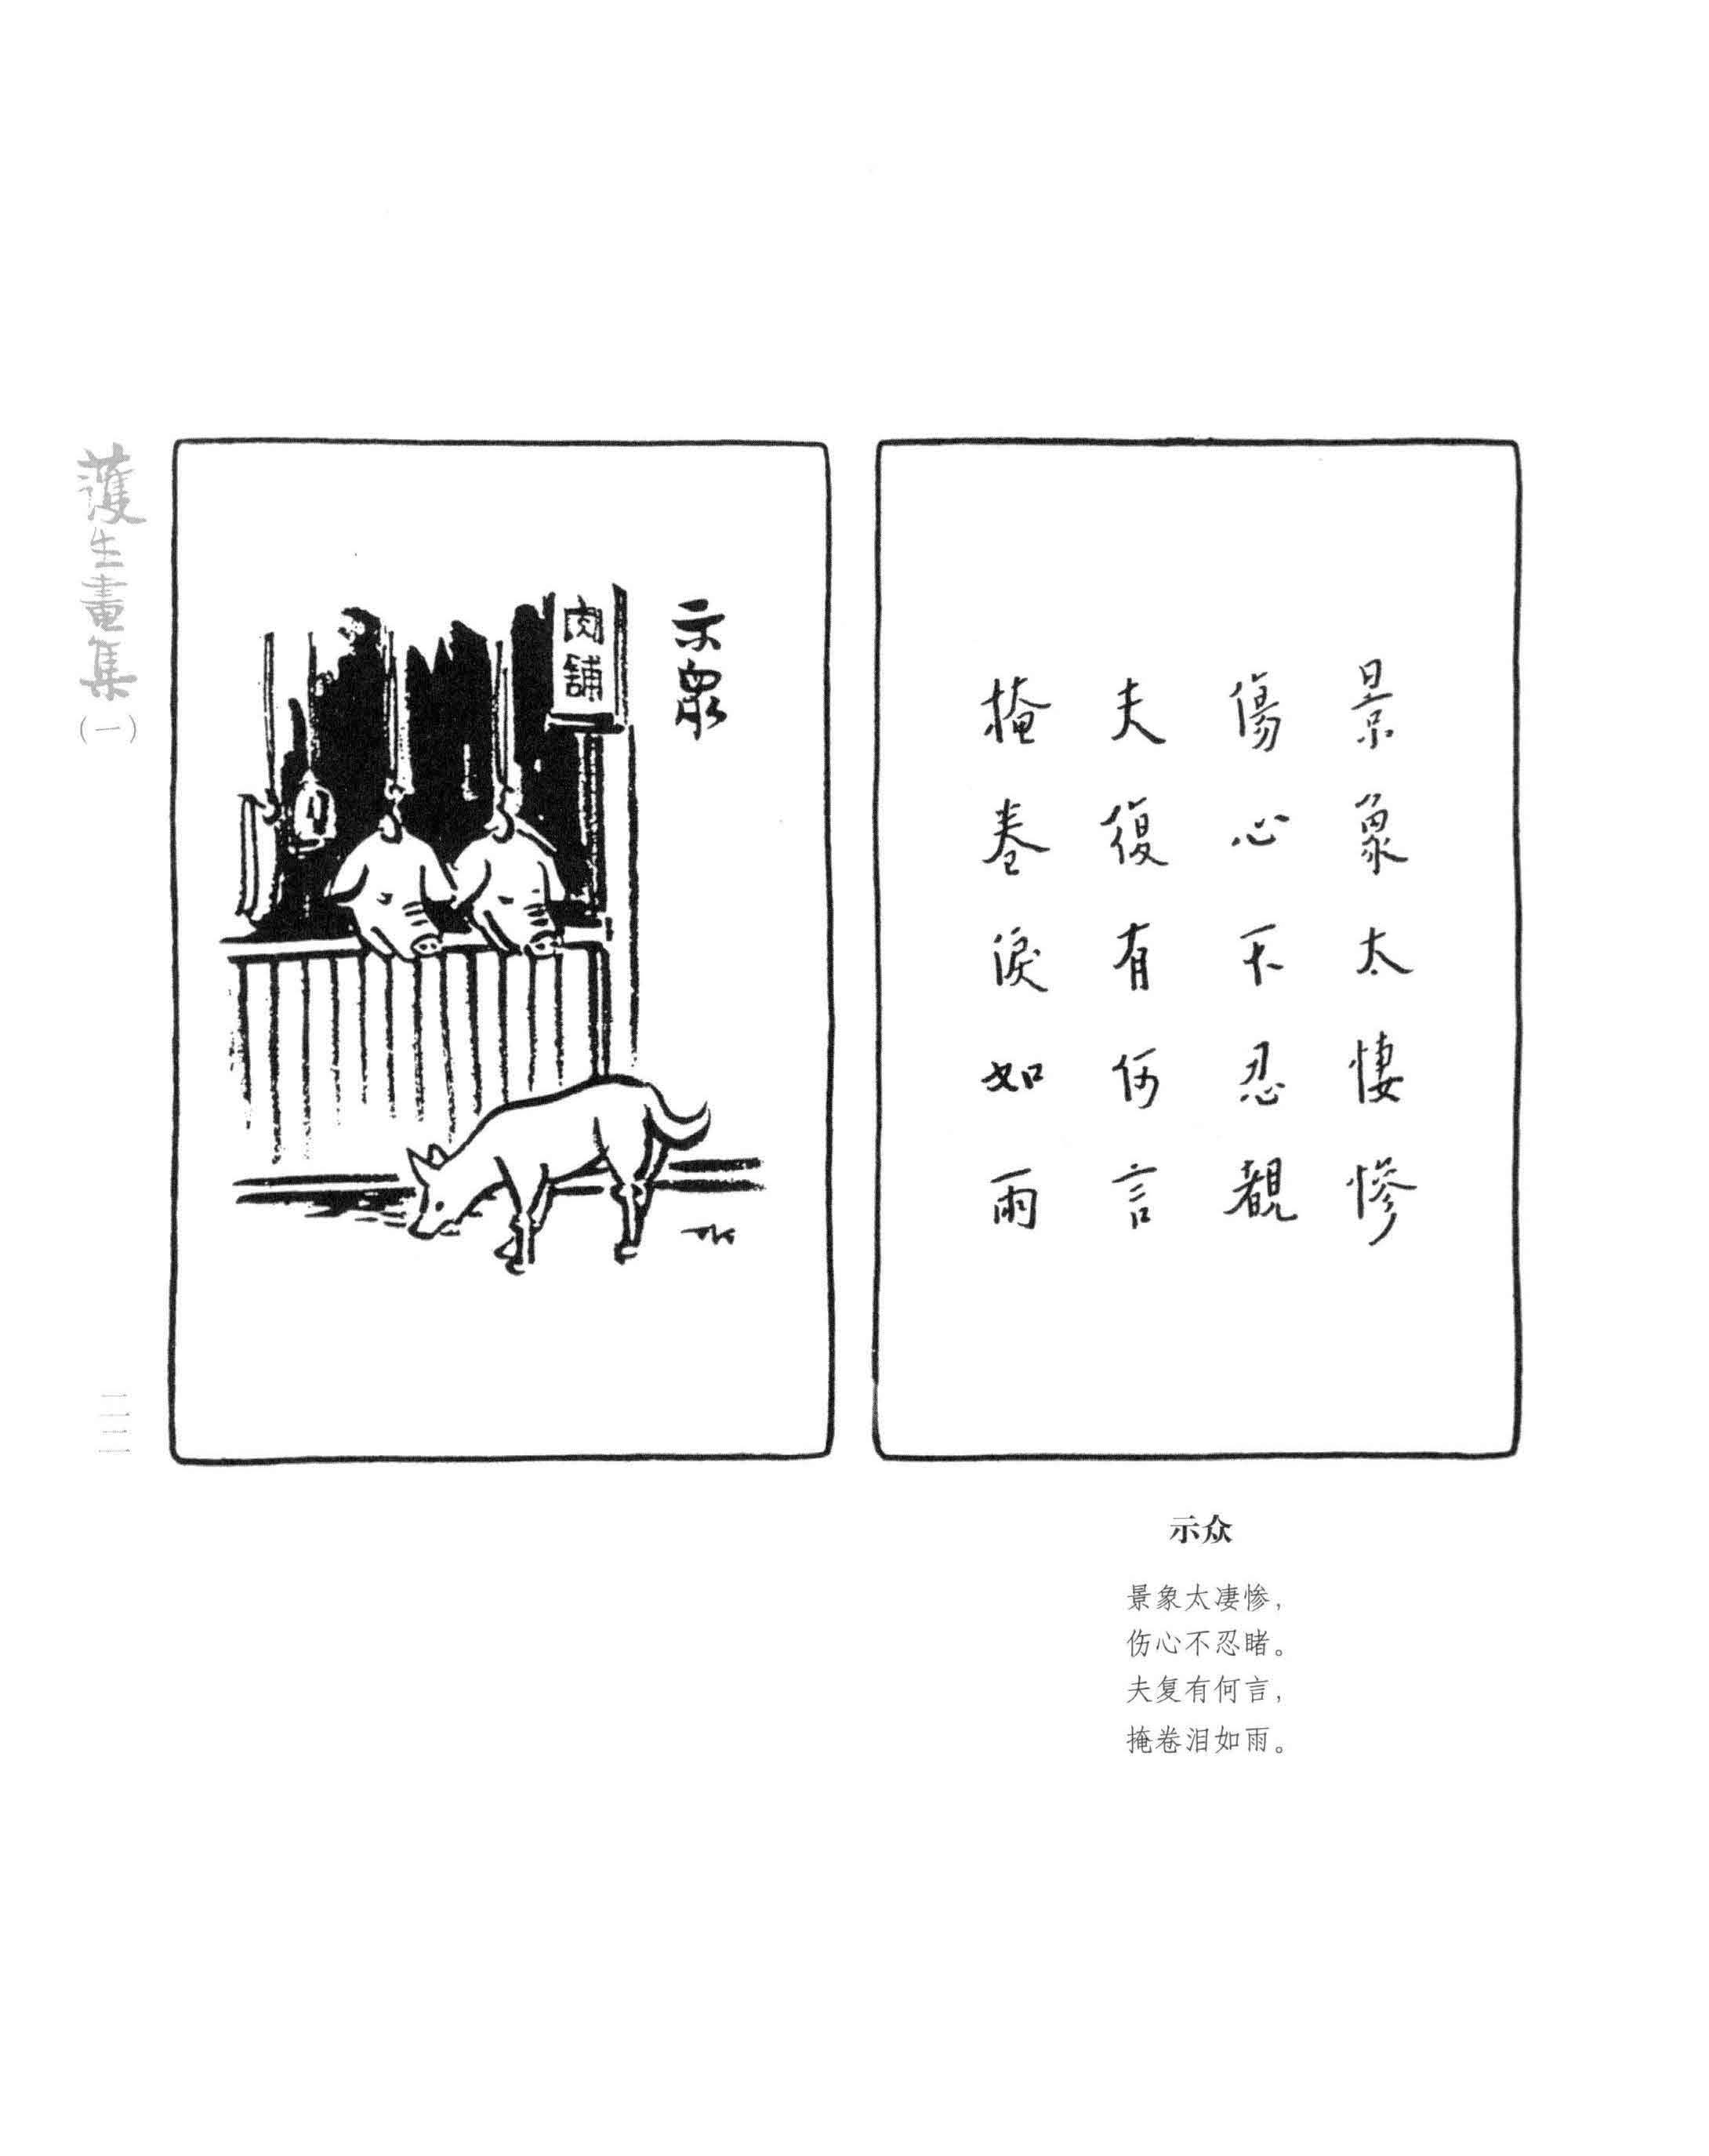 護生畫集
（一）
示眾
肉舖
TK
景象太悽慘
傷心不忍覩
夫復有何言
掩卷淚如雨
示众
景象太凄惨，
伤心不忍睹。
夫复有何言，
掩卷泪如雨。